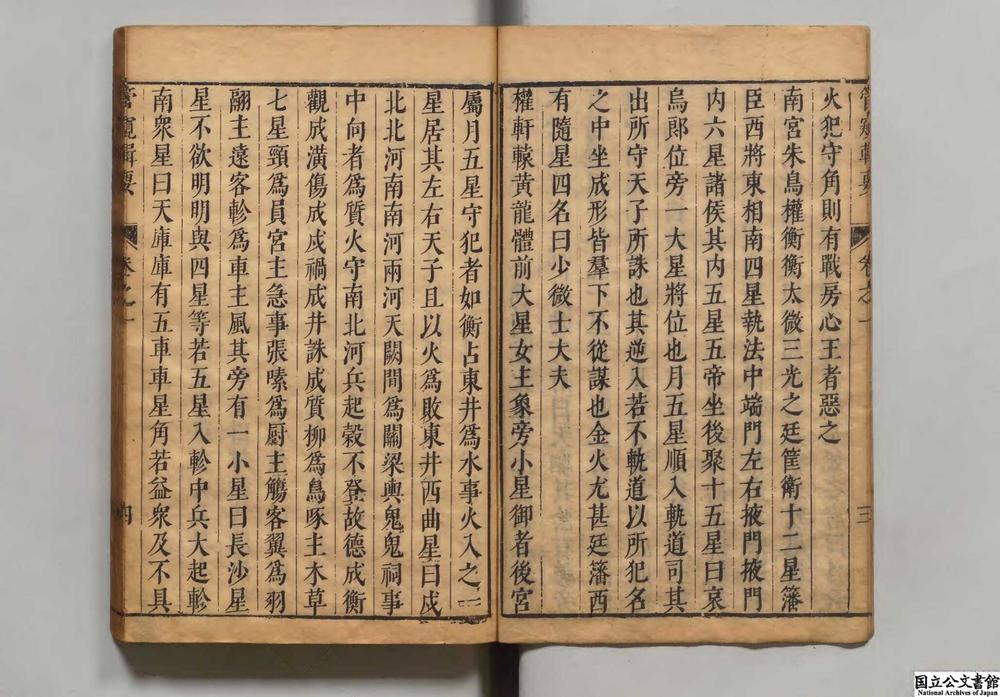 火犯守角則有戰房心王者惡之
南宮朱鳥權衡衡太微三光之廷筐衛十二星藩
臣西將東相南四星執法中端門左右掖門掖門
内六星諸侯其内五星五帝坐後聚十五星曰哀
烏郎位旁一大星將位也月五星順入軌道司其
出所守天子所誅也其逆入若不軌道以所犯名
之中坐成形皆羣下不從謀也金火尤甚廷藩西
有隨星四名曰少微士大夫
權軒轅黃龍體前大星女主象旁小星御者後宮
卷之一
三
屬月五星守犯者如衡占東井為水事火入之一
星居其左右天子且以火為敗東井西曲星曰戉
北北河南南河兩河天闕間為關梁輿鬼鬼祠事
中向者為質火守南北河兵起穀不登故德成衡
觀成潢傷成戉禍成井誅成質柳為鳥啄主木草
七星頸為員宮主急事張嗉為厨主觴客翼為羽
翮主遠客軫為車主風其旁有一小星曰長沙星
星不欲明明與四星等若五星入軫中兵大起軫
南衆星曰天庫庫有五車車星角若益衆及不具
管窺輯要
卷之一
四
国立公文書館
National Archives of Japan